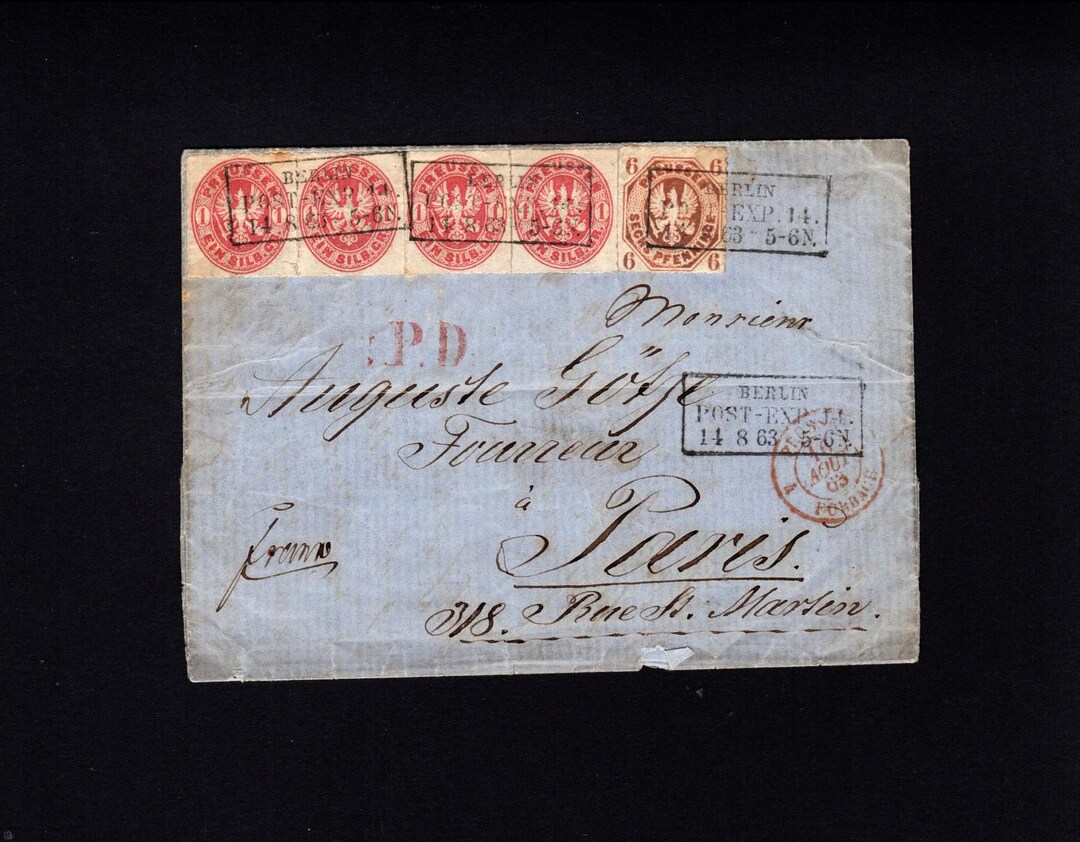 PREUSSEN 1 1 EIN SILB. GR.
PREUSSEN 1 EIN SILB. GR.
PREUSSEN 1 1 EIN SILB. GR.
PREUSSEN 1 1 EIN SILB. GR.
6 6 PREUSSEN SECHS PFENNINGE 6 6
BERLIN
POST-EXP. 14.
14 8 63 5-6N.
BERLIN
14 8 63 5-6N.
BERLIN
EXP. 14.
63 5-6N.
P.D
Monsieur
Auguste Götze
Fourreur
à
Paris.
318. Rue St. Martin.
franco
BERLIN
POST-EXP. 14.
14 8 63 5-6N.
AOUT
63
FORBACH